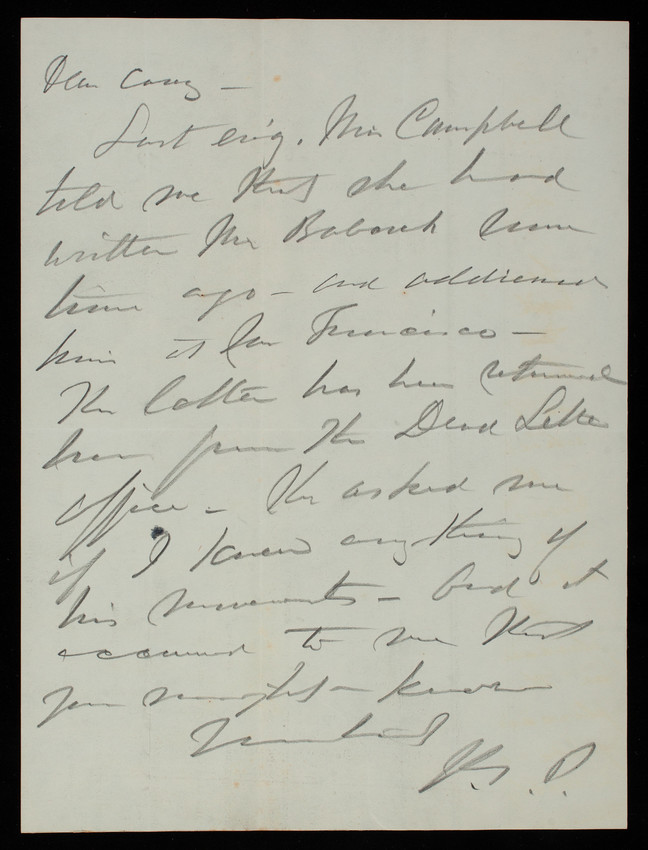 Dear Casey –
Last ev'g. Mrs Campbell
told me that she had
written Mr Babcock some
time ago – and addressed
him at San Francisco –
The letter has been returned
her from the Dead Letter
office – She asked me
if I knew anything of
his movements – And it
occurred to me that
you might – know